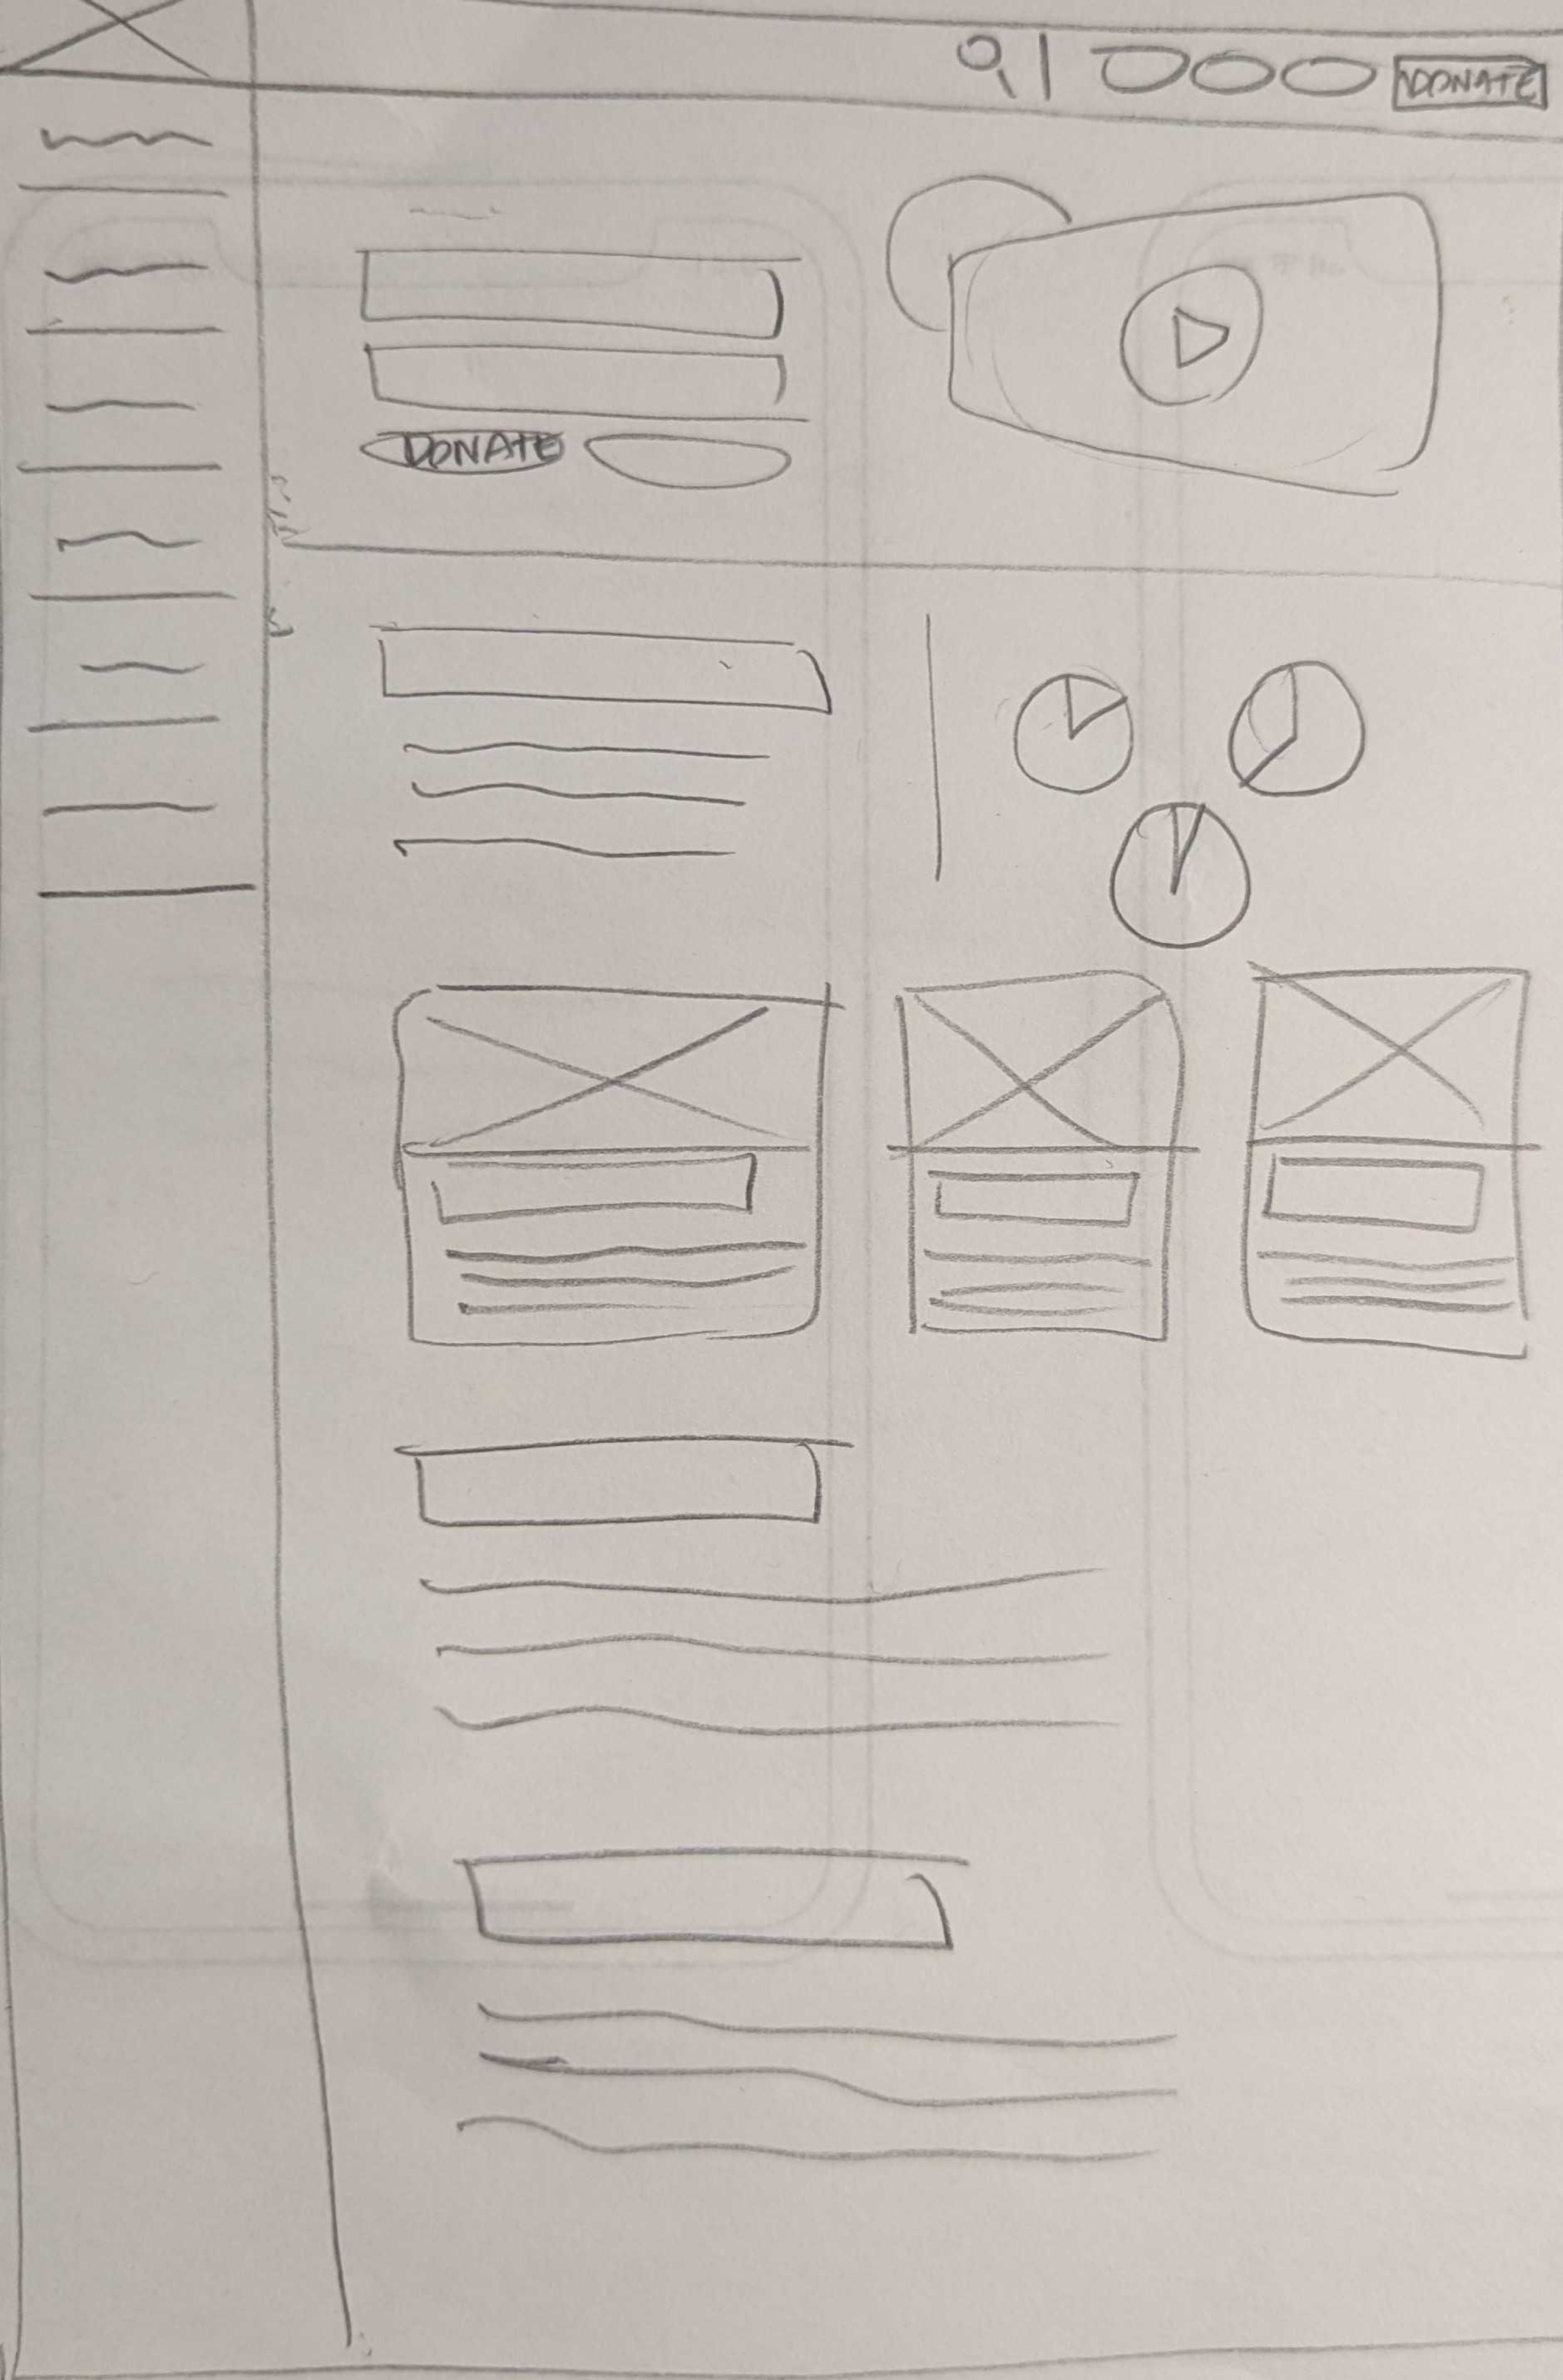 DONATE
DONATE